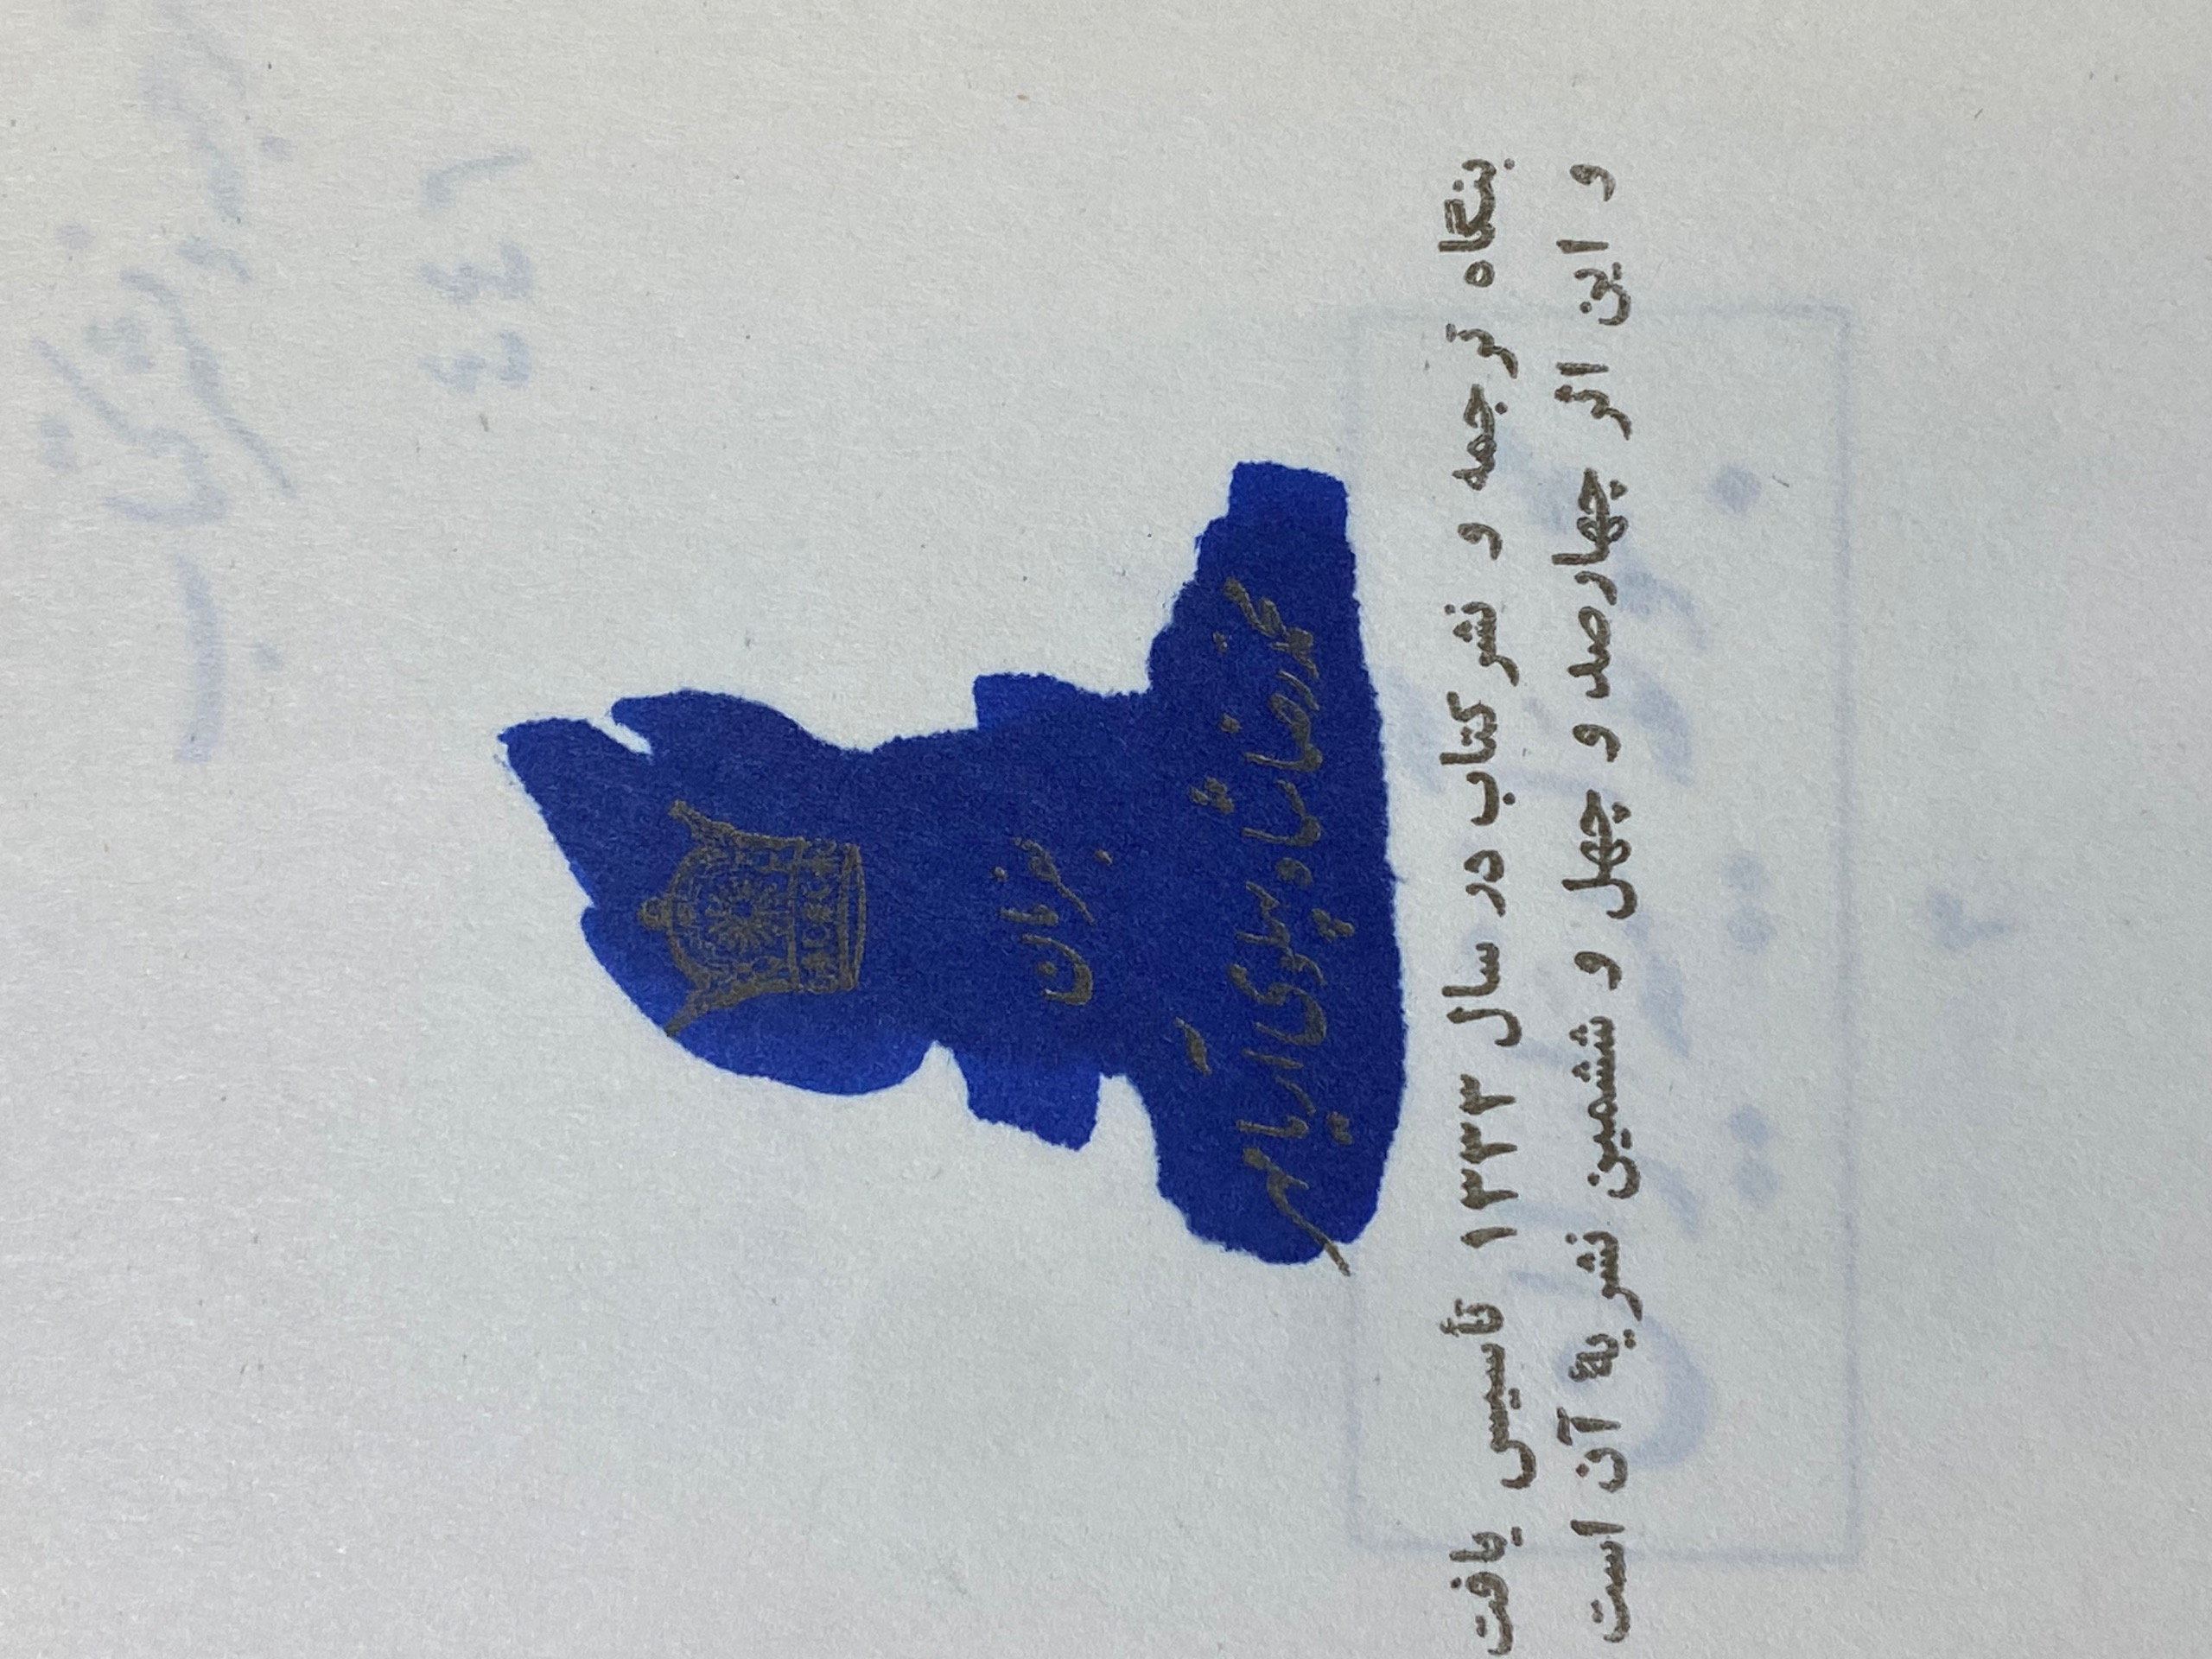 بفرمان
محمدرضا شاه پهلوی آریامهر
بنگاه ترجمه و نشر کتاب در سال ۱۳۳۳ تأسیس یافت
و این اثر چهارصد و چهل و ششمین نشریهٔ آن است